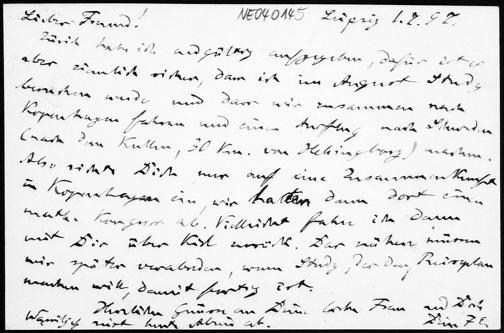 NE040145 Leipzig 1.7.97.
Lieber Freund!
Zürich habe ich endgültig aufgegeben, dafür ist es
aber ziemlich sicher, dass ich im August Study
besuchen werde und dass wir zusammen nach
Kopenhagen fahren und einen Ausflug nach Schweden
(nach dem Kullen, 30 Km. von Helsingborg) machen.
Also richte Dich nur auf eine Zusammenkunft
in Kopenhagen ein, wir halten dann dort einen
Kongress ab. Vielleicht fahre ich dann
mit Dir über Kiel zurück. Das nähere müssen
wir später verabreden, wenn Study
machen will, damit fertig ist.
Herzliche Grüsse an Deine liebe Frau und Dich
Dein F E.